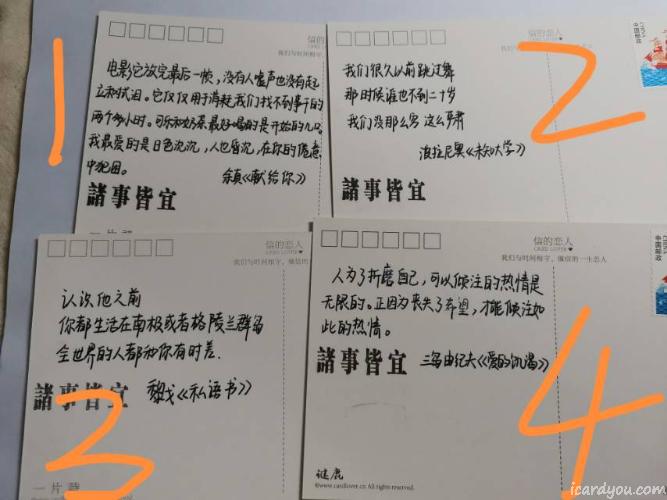 1
信的恋人
CARD LOVER
我们与时间相守,
电影它放完最后一帧,没有人嘘声也没有起
立和拭泪。它仅仅用于消耗我们找不到事干的
两个多小时。可乐和奶茶最好喝的是开始的九口
我最爱的是日色沉沉,人也昏沉,在你的倦意
中犯困。
余真《献给你》
諸事皆宜
一片
2
信的恋人
CARD LOVER
我们与时间相守,做信的一生恋人
中国邮政
CHINA
我们很久以前跳过舞
那时候谁也不到二十岁
我们没那么穷 这么严肃
波拉尼奥《未知大学》
諸事皆宜
3
信的恋人
CARD LOVER
我们与时间相守,做信的
认识他之前
你都生活在南极或者格陵兰群岛
全世界的人都和你有时差.
諸事皆宜
黎戈《私语书》
一片
4
信的恋人
CARD LOVER
我们与时间相守,做信的一生恋人
中国邮政
CHINA
人为了折磨自己,可以倾注的热情是
无限的。正因为丧失了希望,才能倾注如
此的热情。
諸事皆宜
三岛由纪夫《爱的饥渴》
谜鹿
©www.cardlover.cn All rights reserved.
icardyou.com